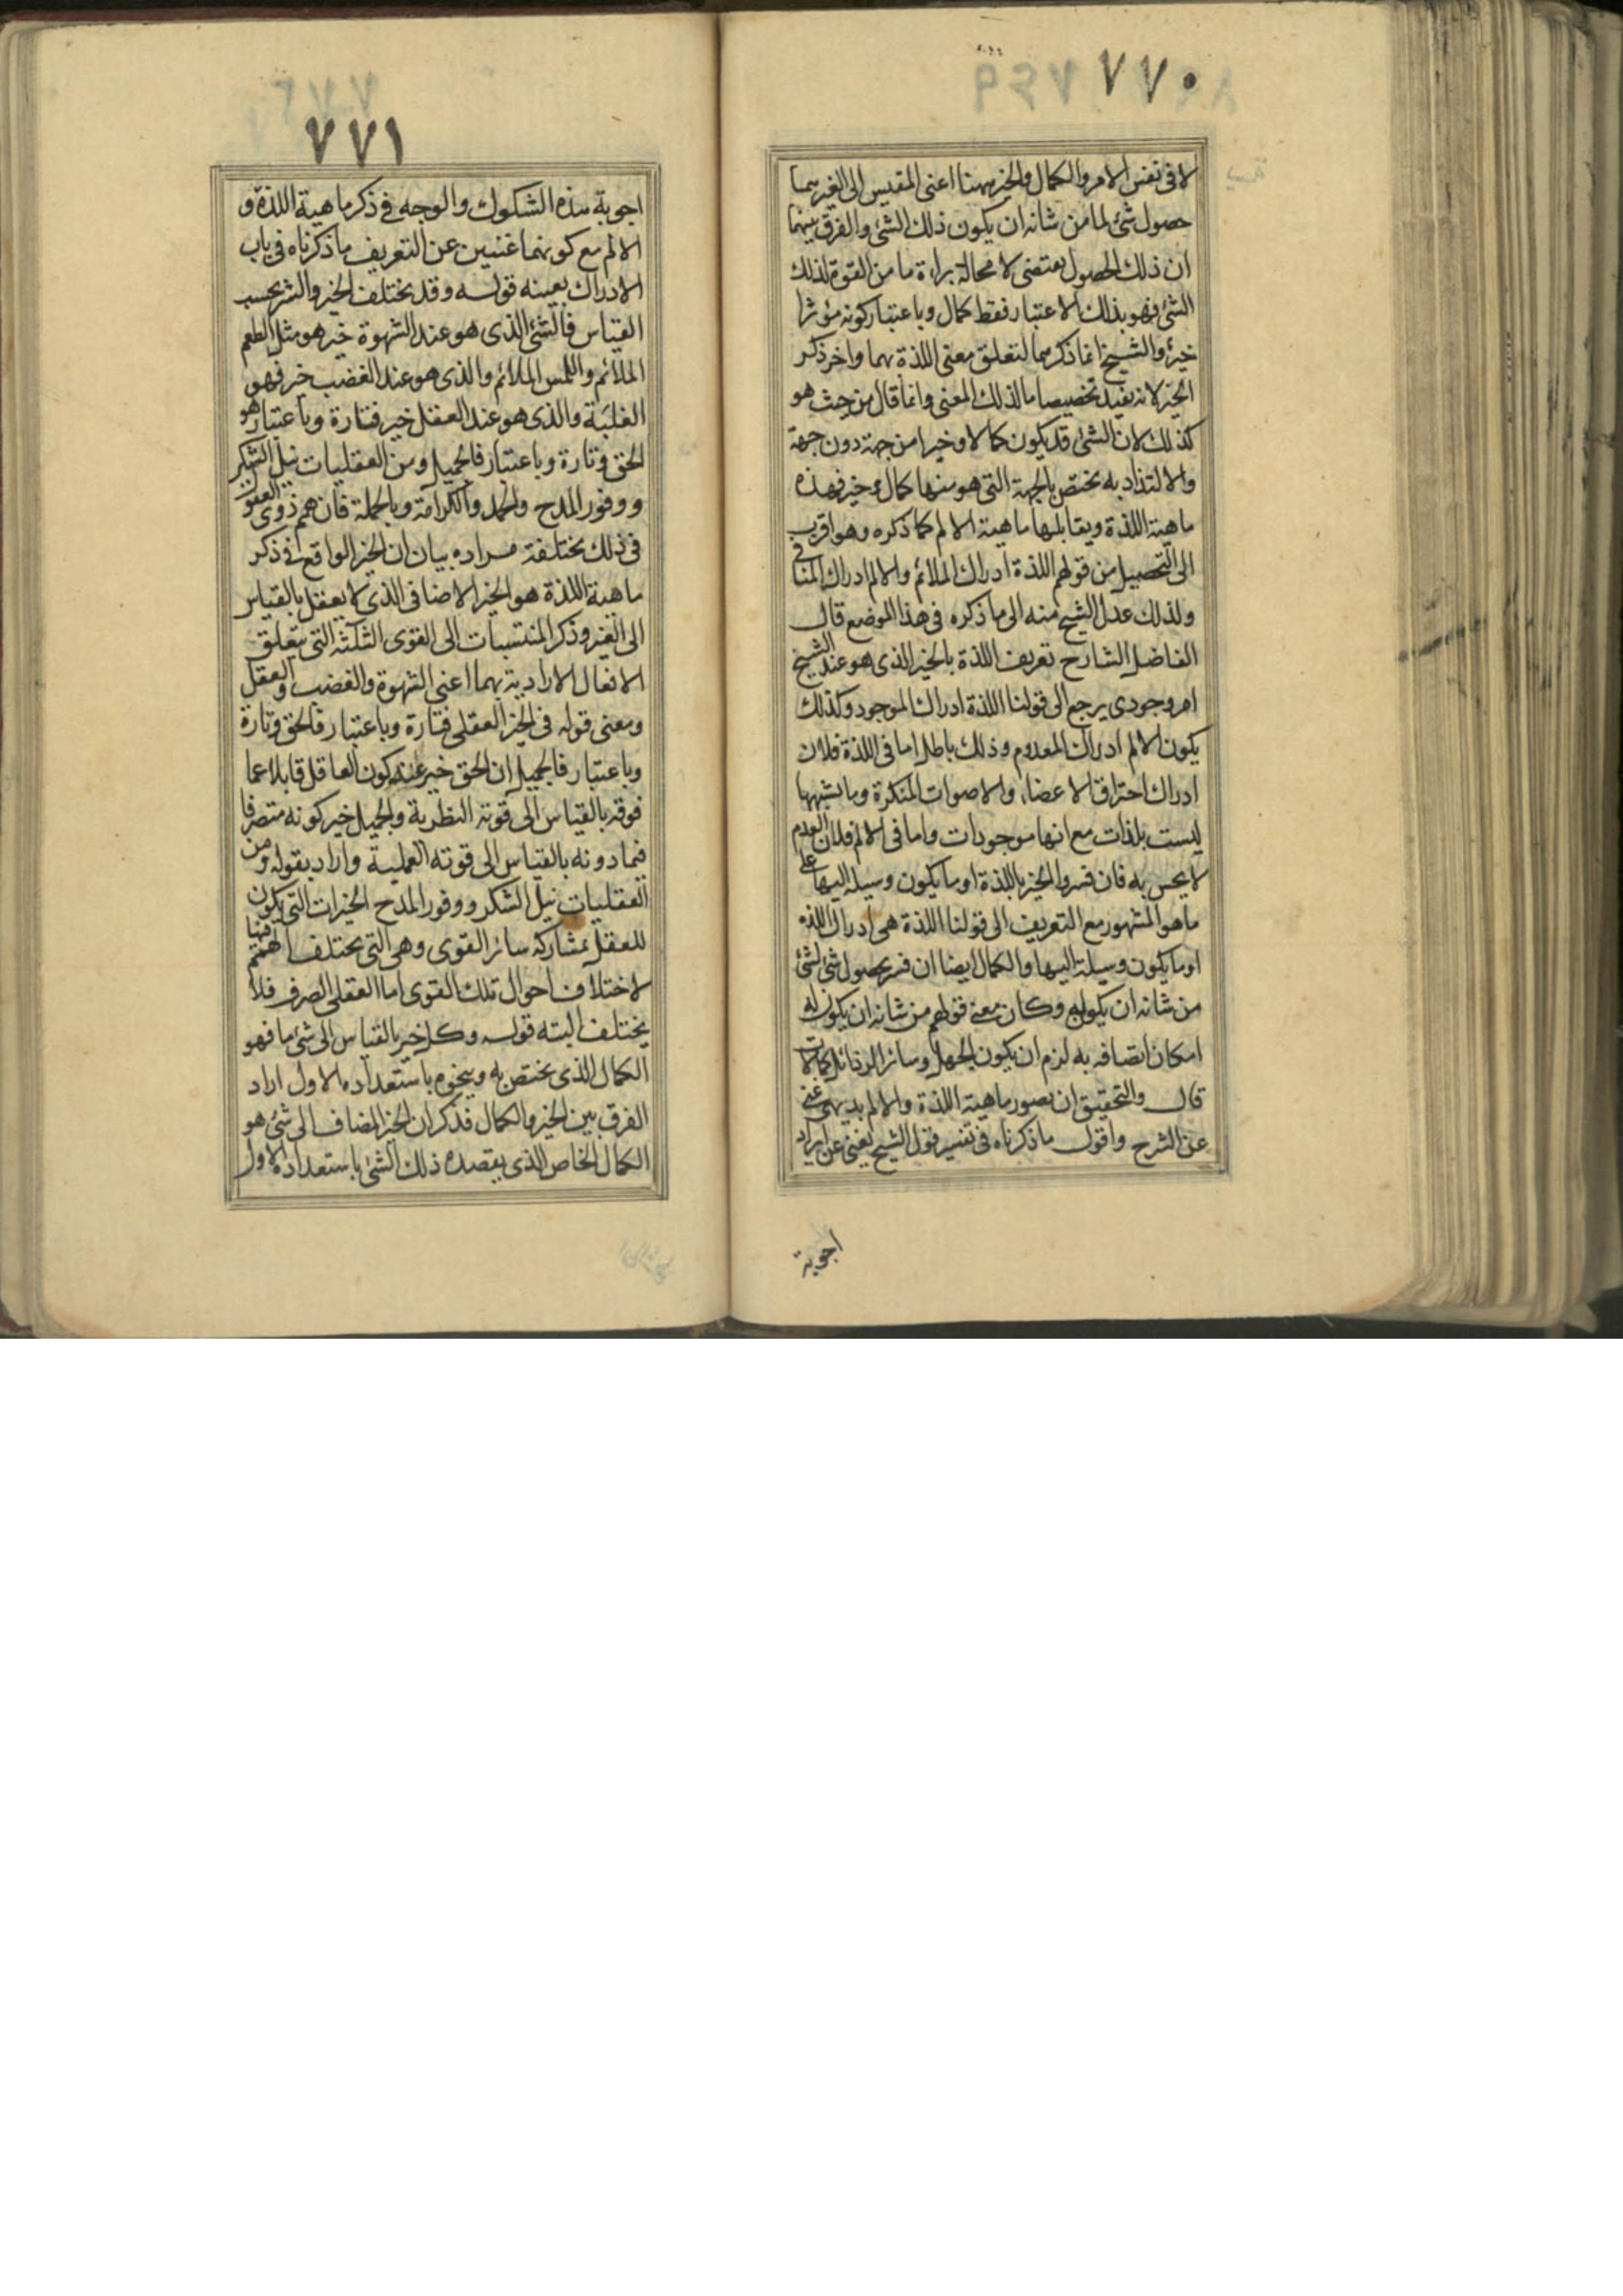 ٧٧٠
لا فى نفس الامر والكمال والخير ههنا اعنى المقيس الى الغير هما
حصول شئ لما من شانه ان يكون ذلك الشئ والفرق بينهما
ان ذلك الحصول يقتضى لا محالة براءة ما من القوة لذلك
الشئ فهو بذلك الاعتبار فقط كمال وباعتبار كونه مؤثرا
خير والشيخ انما ذكرهما لتعلق معنى اللذة بهما واخر ذكر
الخير لانه يفيد تخصيصا ما لذلك المعنى وانما قال من حيث هو
كذلك لان الشئ قد يكون كمالا وخيرا من جهة دون جهة
والالتذاذ به يختص بالجهة التى هو منها كمال وخير فهذه
ماهية اللذة ويقابلها ماهية الالم كما ذكره وهو اقرب
الى التحصيل من قولهم اللذة ادراك الملائم والالم ادراك المنافى
ولذلك عدل الشيخ منه الى ما ذكره فى هذا الموضع قال
الفاضل الشارح تعريف اللذة بالخير الذى هو عند الشيخ
امر وجودى يرجع الى قولنا اللذة ادراك الموجود وكذلك
يكون الالم ادراك المعدوم وذلك باطل اما فى اللذة فلان
ادراك احتراق الاعضاء والاصوات المنكرة وما يشبهها
ليست بلذات مع انها موجودات واما فى الالم فلان العدم
لا يحس به فان فسروا الخير باللذة او ما يكون وسيلة اليها على
ما هو المشهور مع التعريف الى قولنا اللذة هى ادراك اللذة
او ما يكون وسيلة اليها والكمال ايضا ان فسر بحصول شئ لشئ
من شانه ان يكون له وكان معنى قولهم من شانه ان يكون له
امكان اتصافه به لزم ان يكون الجهل وسائر الرذائل كمالات
قال والتحقيق ان تصور ماهية اللذة والالم بديهى غنى
عن الشرح واقول ما ذكرناه فى تفسير قول الشيخ يغنى عن ايراد
اجوبة
٧٧١
اجوبة هذه الشكوك والوجه فى ذكر ماهية اللذة و
الالم مع كونهما غنيين عن التعريف ما ذكرناه فى باب
الادراك بعينه قوله وقد يختلف الخير والشر بحسب
القياس فالشئ الذى هو عند الشهوة خير هو مثل المطعم
الملائم واللمس الملائم والذى هو عند الغضب خير فهو
الغلبة والذى هو عند العقل خير فتارة وباعتبار هو
الحق وتارة وباعتبار فالجميل ومن العقليات نيل الشكر
ووفور المدح والحمد والكرامة وبالجملة فان همم ذوى العقول
فى ذلك مختلفة مراده بيان ان الخير الواقع فى ذكر
ماهية اللذة هو الخير الاضافى الذى لا يعقل بالقياس
الى الغير وذكر المنتسبات الى القوى الثلثه التى يتعلق
الافعال الارادية بهما اعنى الشهوة والغضب والعقل
ومعنى قوله فى الخير العقلى فتارة وباعتبار فالحق وتارة
وباعتبار فالجميل ان الحق خير عند كون العاقل قابلا عما
فوقه بالقياس الى قوته النظرية والجميل خير كونه متصرفا
فيما دونه بالقياس الى قوته العملية واراد بقوله ومن
العقليات نيل الشكر ووفور المدح الخيرات التى يكون
للعقل بمشاركة سائر القوى وهى التى يختلف الهمم فيها
لاختلاف احوال تلك القوى اما العقلى الصرف فلا
يختلف البته قوله وكل خير بالقياس الى شئ ما فهو
الكمال الذى يختص به وينحوه باستعداده الاول اراد
الفرق بين الخير والكمال فذكر ان الخير المضاف الى شئ هو
الكمال الخاص الذى يقصده ذلك الشئ باستعداده الاول